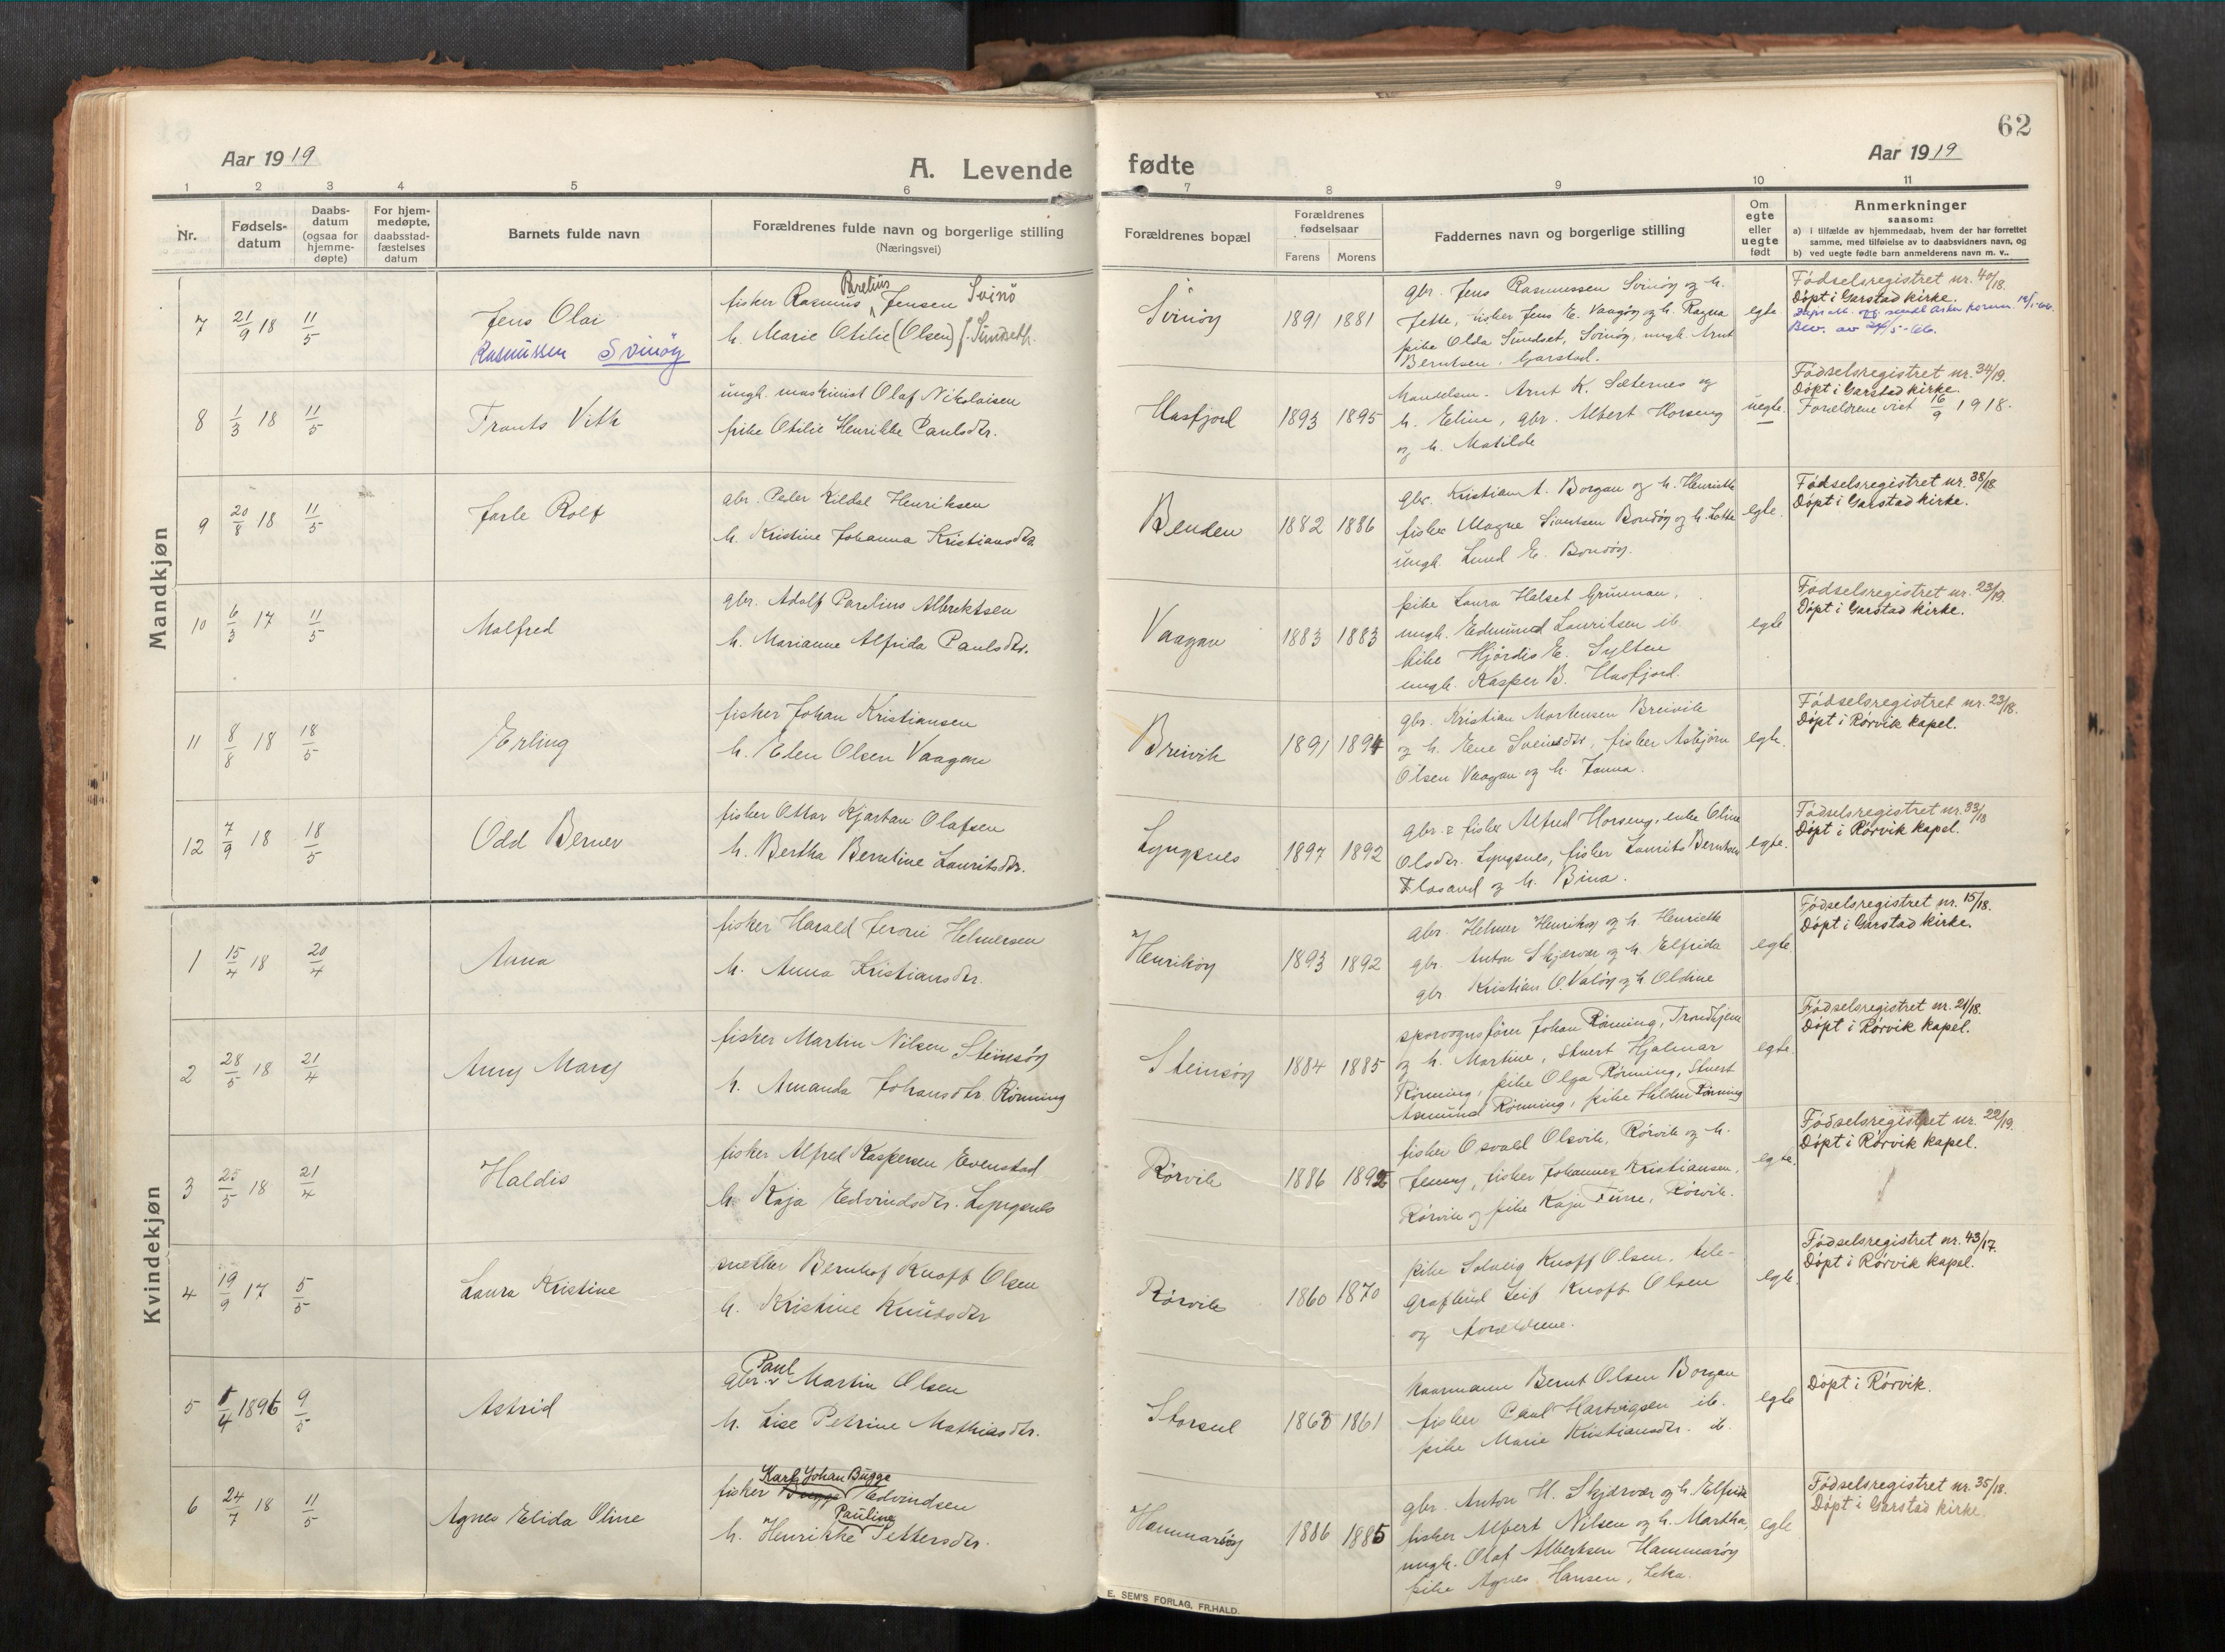 62
Aar 1919
A. Levende
fødte
Aar 1919
1 2 3 4 5 6 7 8 9 10 11
Nr.
Fødsels-
datum
Daabs-
datum
(ogsaa for
hjemme-
døpte)
For hjem-
medøpte,
daabsstad-
fæstelses
datum
Barnets fulde navn
Forældrenes fulde navn og borgerlige stilling
(Næringsvei)
Forældrenes bopæl
Forældrenes
fødselsaar
Farens Morens
Faddernes navn og borgerlige stilling
Om
egte
eller
uegte
født
Anmerkninger
saasom:
a) i tilfælde av hjemmedaab, hvem der har forrettet
samme, med tilføielse av to daabsvidners navn, og
b) ved uegte fødte barn anmelderens navn m. v..
Mandkjøn
7 21/9 18 11/5
Jens Olai
Rasmussen Svinøy
Parelius
fisker Rasmus Jensen Svinö
h. Marie Otilie (Olsen) f. Sundseth.
Svinöy
1891 1881
gbr. Jens Rasmussen Svinöy og h.
Jette, fisker Jens E. Vaagöy og h. Ragna
pike Olda Sundset, Svinöy, ungk. Arnt
Berntsen, Garstad.
egte
Fødselsregistret nr. 40/18.
Døpt i Garstad kirke.
8 1/3 18 11/5
Frants Vith
ungk. maskinist Olaf Nikolaisen
pike Otilie Henrikke Paulsdtr.
Hasfjord
1893 1895
Handelsm. Arnt K. Sæternes og
h. Eline, gbr. Albert Horseng
og h. Matilde
uegte.
Fødselsregistret nr. 34/19.
Døpt i Garstad kirke.
Forældrene viet 16/9 1918.
9 20/8 18 11/5
Jarle Rolf
gbr. Peder Kildal Henriksen
h. Kristine Johanna Kristiansdtr.
Benden
1882 1886
gbr. Kristian A. Borgan og h. Henriette
fisker Magne Sivertsen Bondöy og h. Lotte
ungk. Lund E. Bondöy.
egte.
Fødselsregistret nr. 38/18
Døpt i Garstad kirke.
10 6/3 17 11/5
Malfred
gbr. Adolf Parelius Albrektsen
h. Marianne Alfrida Paulsdtr.
Vaagan
1883 1883
pike Laura Halset Grunnan,
ungk. Edmund Lauritsen ib.
pike Hjördis E. Sylten
ungk. Kasper B. Hasfjord.
egte
Fødselsregistret nr. 23/19.
Døpt i Garstad kirke.
11 8/8 18 18/5
Erling
fisker Johan Kristiansen
h. Elen Olsen Vaagan
Breivik
1891 1894
gbr. Kristian Mortensen Breivik
og h. Ene Sveinsdtr, fisker Asbjörn
Olsen Vaagan og h. Janna.
egte.
Fødselsregistret nr. 23/18.
Døpt i Rørvik kapel.
12 7/9 18 18/5
Odd Berner
fisker Ottar Kjartan Olafsen
h. Bertha Berntine Lauritsdtr.
Lyngsnes
1897 1892
gbr. & fisker Alfred Horseng, enke Oline
Olsdtr. Lyngsnes, fisker Laurits Berntsen
Flosand og h. Bina.
egte.
Fødselsregistret nr. 33/18
Døpt i Rørvik kapel.
Kvindekjøn
1 15/4 18 20/4
Anna
fisker Harald Jeroni Helmersen
h. Anna Kristiansdtr.
Henriköy
1893 1892
gbr. Helmer Henriköy og h. Henriette
gbr. Anton Skjærvær og h. Elfrida
gbr. Kristian O. Valöy og h. Oldine
egte
Fødselsregistret nr. 15/18.
Døpt i Garstad kirke.
2 28/5 18 21/4
Anny Mary
fisker Martin Nilsen Steinsöy
h. Amanda Johansdtr. Rönning
Steinsöy
1884 1885
sporvognsfører Johan Rönning, Trondhjem
og h. Martine, stuert Hjalmar
Rönning, pike Olga Rönning, stuert
Asmund Rönning, pike Hildur Rönning
egte.
Fødselsregistret nr. 21/18.
Døpt i Rørvik kapel.
3 25/5 18 21/4
Haldis
fisker Alfred Kaspersen Evenstad
h. Kaja Edvindsdtr. Lyngsnes
Rörvik
1886 1892
fisker Osvald Olsvik, Rörvik og h.
Jenny, fisker Johannes Kristiansen,
Rörvik og pike Kaja Finne, Rörvik.
egte.
Fødselsregistret nr. 22/19.
Døpt i Rørvik kapel.
4 19/9 17 5/5
Laura Kristine
snekker Bernhof Knoff Olsen
h. Kristine Knudsdtr
Rörvik
1860 1870
pike Solveig Knoff Olsen, tele-
grafbud Leif Knoff Olsen
og forældrene.
egte.
Fødselsregistret nr. 43/17.
Døpt i Rørvik kapel.
5 1/4 1896 9/5
Astrid
Paul
gbr. Martin Olsen
h. Lise Petrine Mathiasdtr.
Storsul
1863 1861
kaarmann Bernt Olsen Borgan
fisker Paul Hartvigsen ib.
pike Marie Kristiansdtr. ib.
egte
Døpt i Rørvik.
6 24/7 18 11/5
Agnes Elida Oline
Karl Johan Bugge
fisker Bugge Edvindsen
Pauline
h. Henrikke Pettersdtr.
Hammaröy
1886 1885
gbr. Anton H. Skjærvær og h. Elfride
fisker Albert Nilsen og h. Martha,
ungk. Olaf Albertsen Hammaröy
pike Agnes Hansen, Leka.
egte
Fødselsregistret nr. 35/18.
Døpt i Garstad kirke.
E. SEM'S FORLAG, FR.HALD.